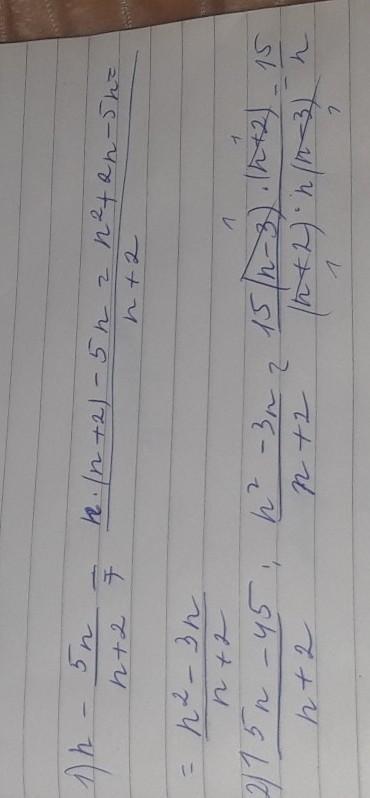 1) n - 5n/(n+2) = (n·(n+2) - 5n)/(n+2) = (n²+2n-5n)/(n+2) =
= (n² - 3n)/(n+2)
2) (15n - 45)/(n+2) : (n² - 3n)/(n+2) = (15(n-3)·(n+2))/((n+2)·n(n-3)) = 15/n